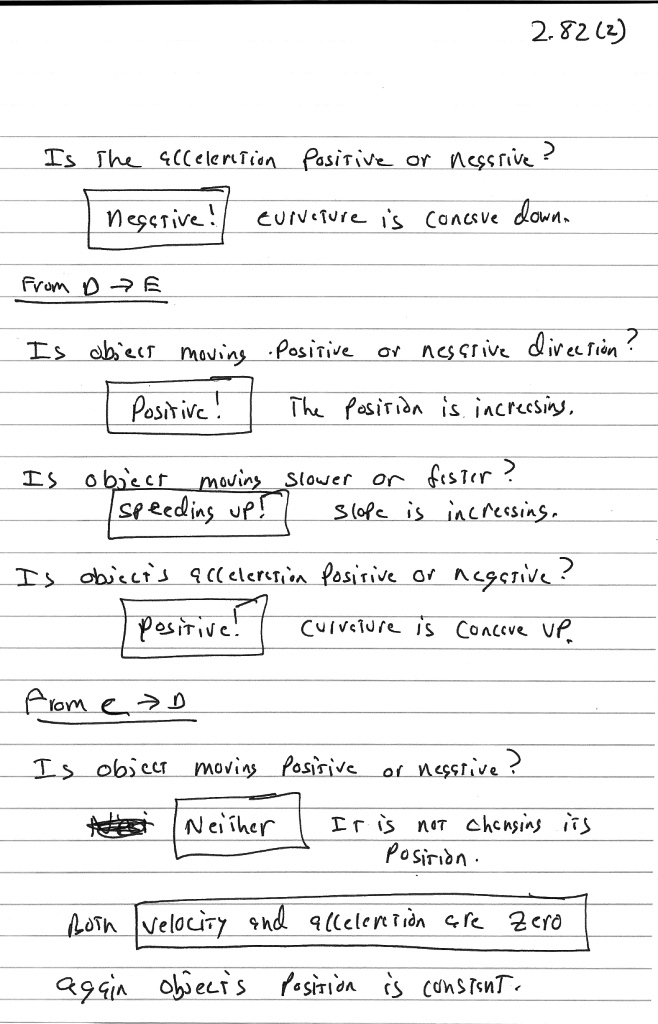 2.82(2)
Is the acceleration Positive or negative?
Negative! curvature is concave down.
From D → E
Is object moving Positive or negative direction?
Positive! The position is increasing.
Is object moving slower or faster?
Speeding up! slope is increasing.
Is object's acceleration Positive or negative?
positive! Curvature is Concave up.
From C → D
Is object moving Positive or negative?
Neither It is not changing its
Position.
Both velocity and acceleration are Zero
again object's Position is constant.